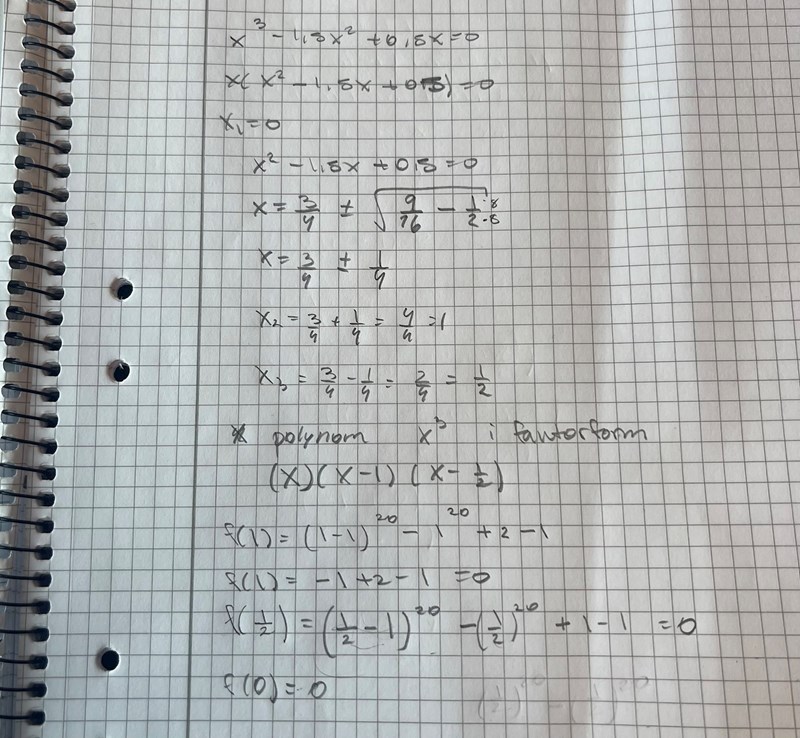 x³ - 1,5x² + 0,5x = 0
x(x² - 1,5x + 0,5) = 0
x₁ = 0
x² - 1,5x + 0,5 = 0
x = 3/4 ± √(9/16 - 1/2 ·8/·8)
x = 3/4 ± 1/4
x₂ = 3/4 + 1/4 = 4/4 = 1
x₃ = 3/4 - 1/4 = 2/4 = 1/2
polynom x³ i faktorform
(x)(x-1)(x - 1/2)
f(1) = (1-1)²⁰ - 1²⁰ + 2 - 1
f(1) = -1 + 2 - 1 = 0
f(1/2) = (1/2 - 1)²⁰ - (1/2)²⁰ + 1 - 1 = 0
f(0) = 0